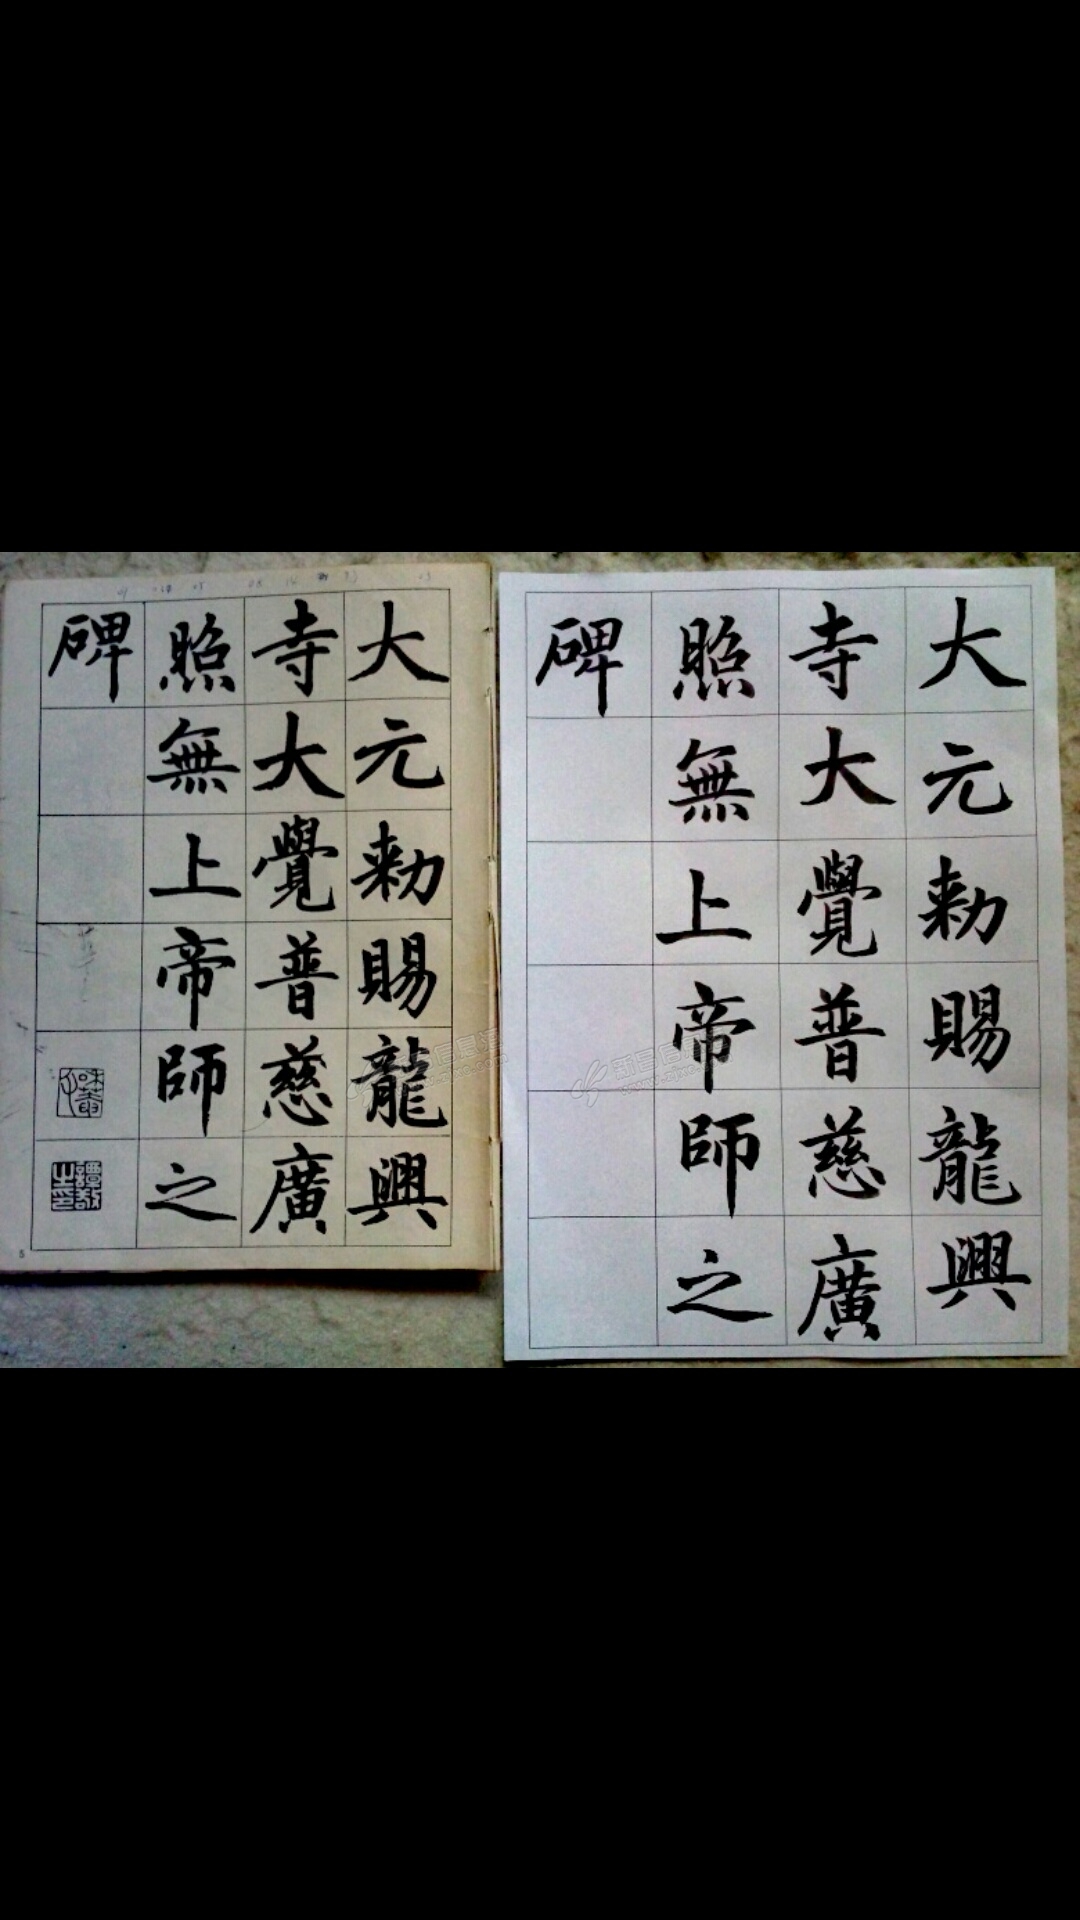 大元勑賜龍興
寺大覺普慈廣
照無上帝師之
碑
大元勑賜龍興
寺大覺普慈廣
照無上帝師之
碑